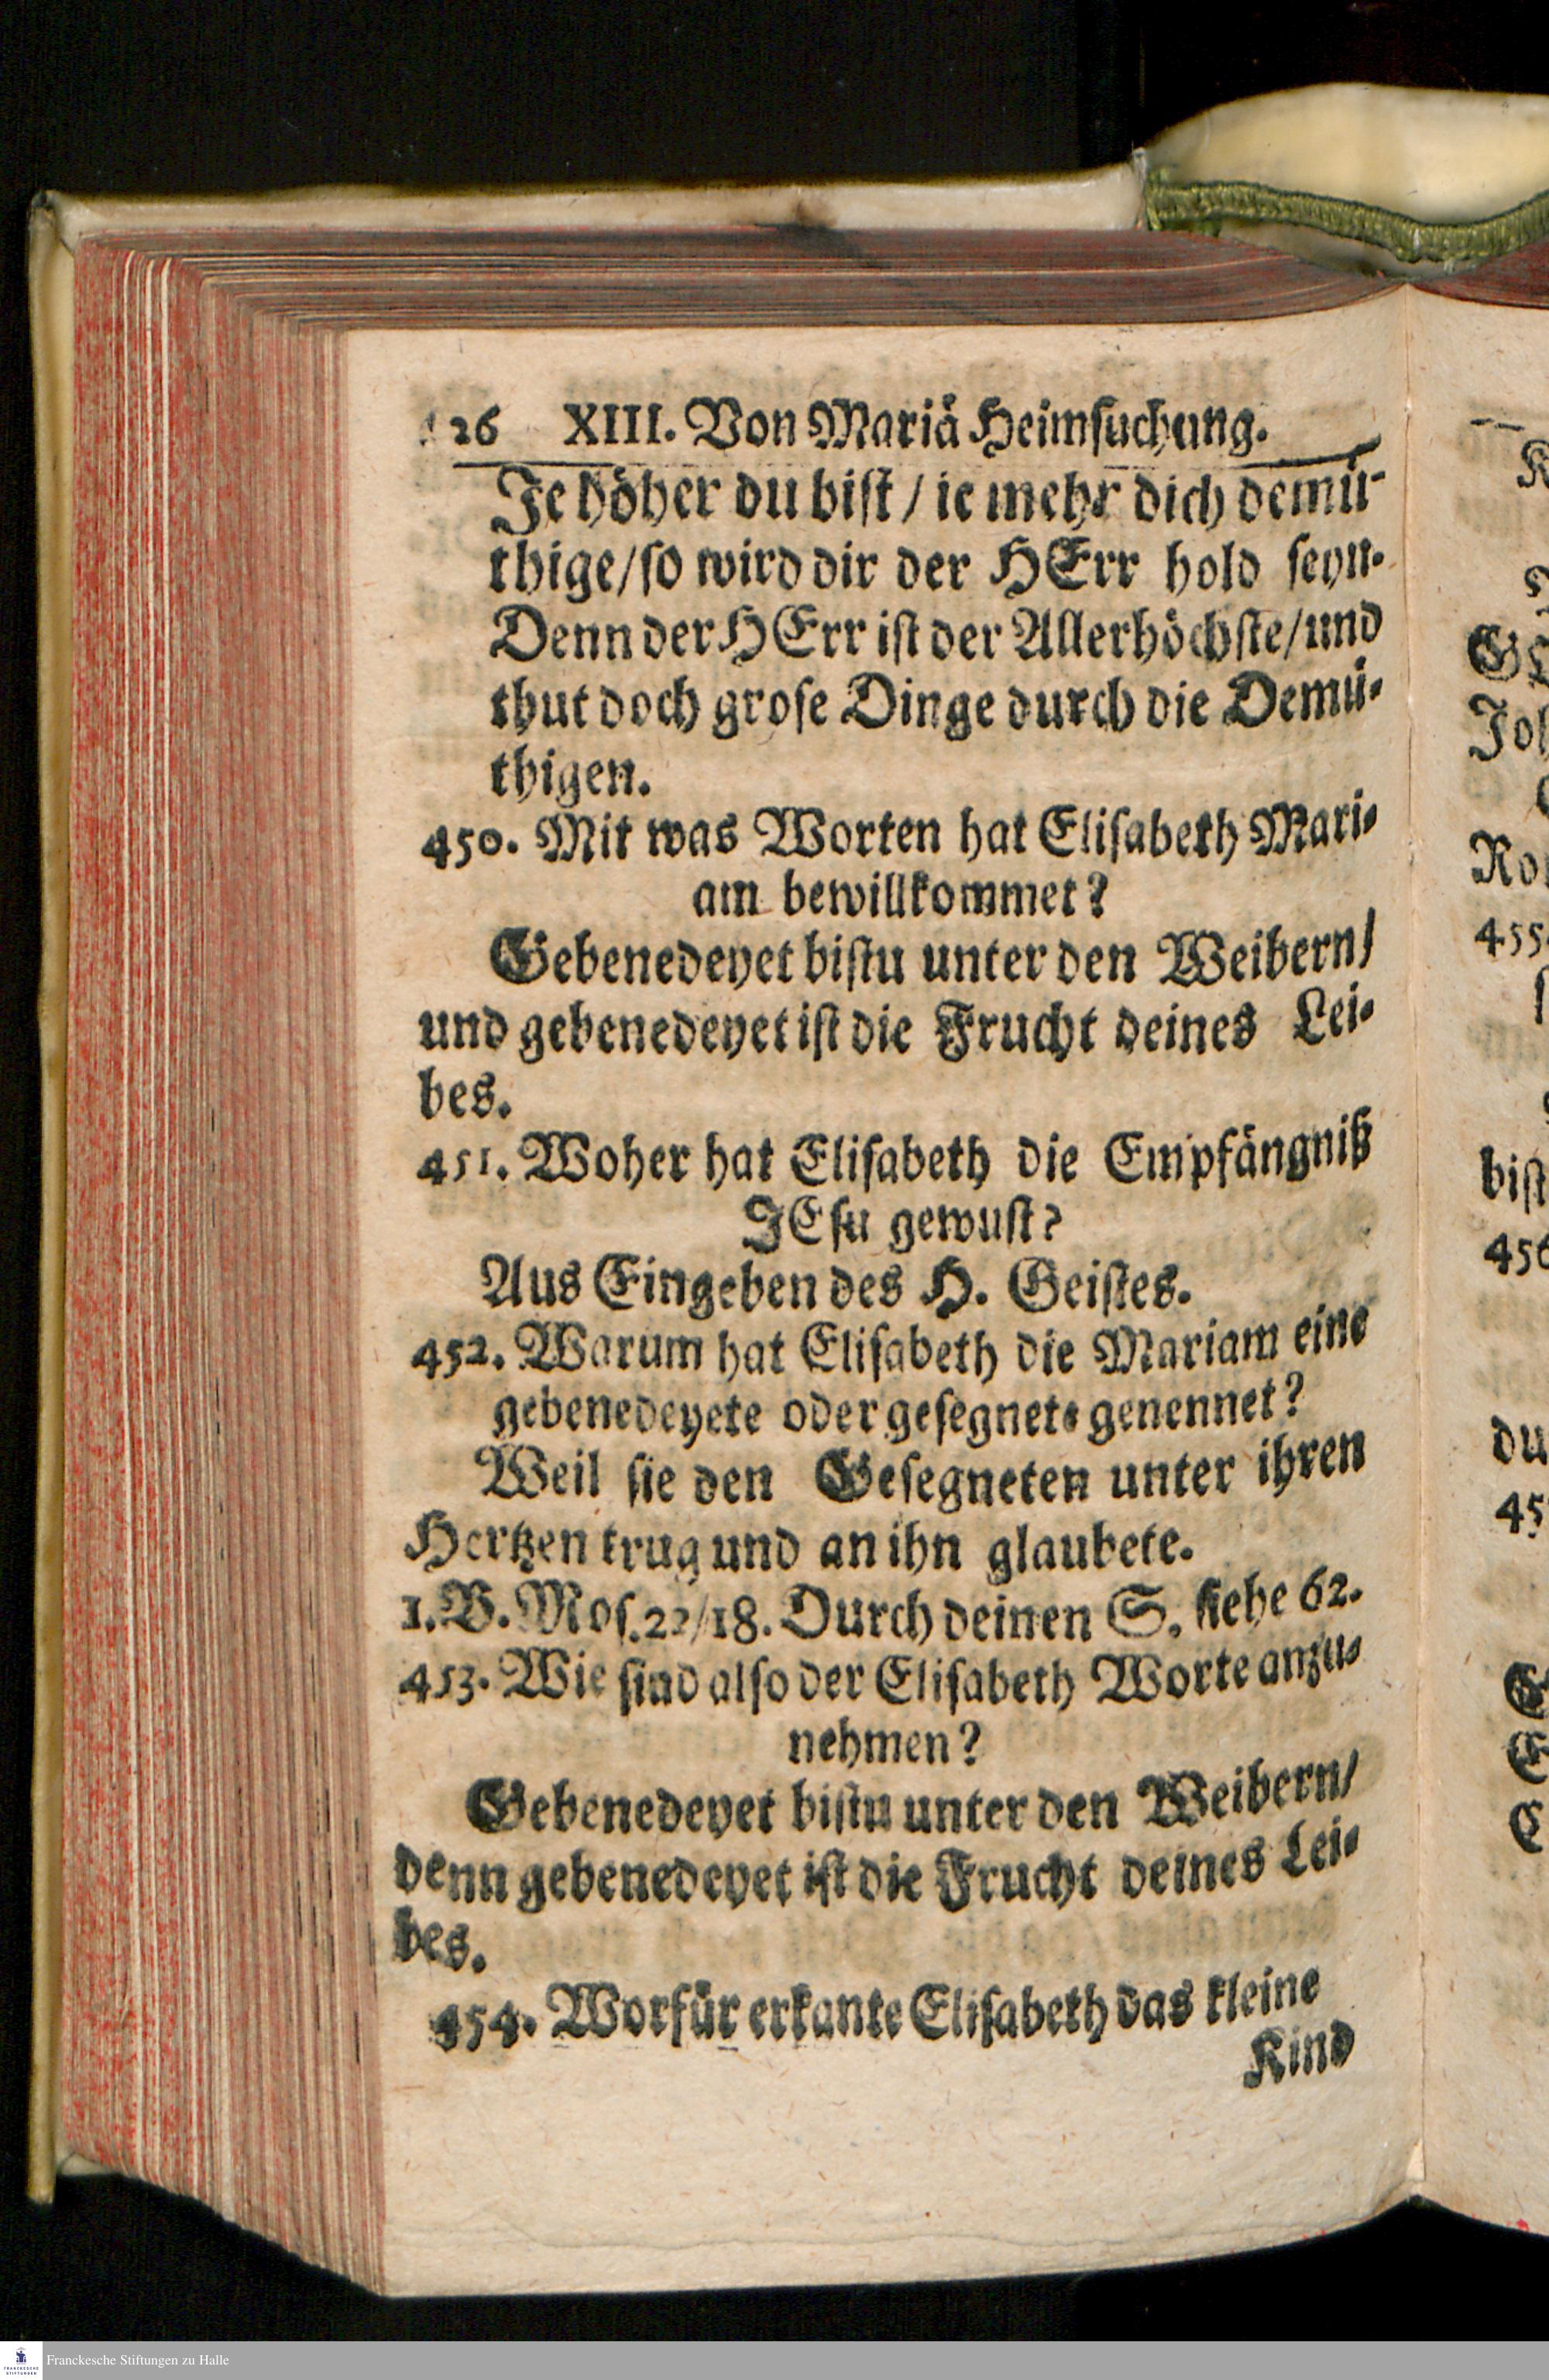 126 XIII. Von Mariä Heimsuchung.
Je höher du bist / ie mehr dich demü-
thige/so wird dir der HErr hold seyn.
Denn der HErr ist der Allerhöchste/und
thut doch grose Dinge durch die Demü-
thigen.
450. Mit was Worten hat Elisabeth Mari-
am bewillkommet?
Gebenedeyet bistu unter den Weibern/
und gebenedeyet ist die Frucht deines Lei-
bes.
451. Woher hat Elisabeth die Empfängniß
JEsu gewust?
Aus Eingeben des H. Geistes.
452. Warum hat Elisabeth die Mariam eine
gebenedeyete oder gesegnete genennet?
Weil sie den Gesegneten unter ihren
Hertzen trug und an ihn glaubete.
1. B. Mos. 22/18. Durch deinen S. siehe 62.
453. Wie sind also der Elisabeth Worte anzu-
nehmen?
Gebenedeyet bistu unter den Weibern/
denn gebenedeyet ist die Frucht deines Lei-
bes.
454. Worfür erkante Elisabeth das kleine
Kind
455
bist
456
du
45
Franckesche Stiftungen zu Halle